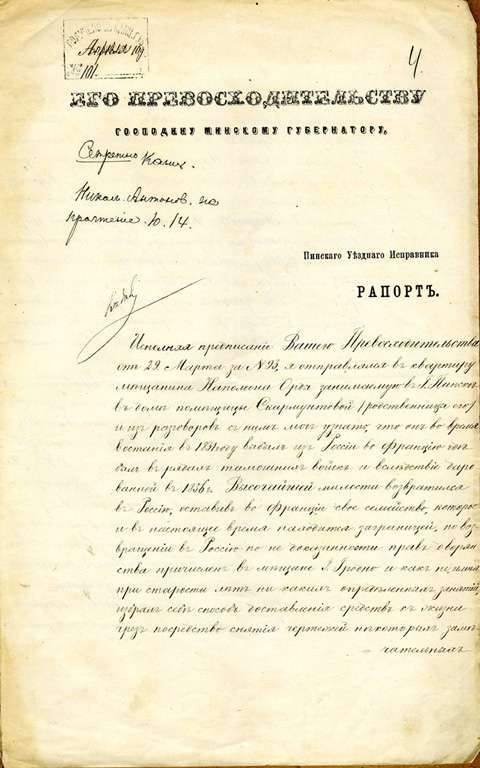 Апрѣля
101.
4.
ЕГО ПРЕВОСХОДИТЕЛЬСТВУ
ГОСПОДИНУ МИНСКОМУ ГУБЕРНАТОРУ,
Секретно
Пинскаго Уѣзднаго Исправника
РАПОРТЪ.
Исполняя предписаніе Вашего Превосходительства
отъ 29 Марта за № 93, я отправлялся въ квартиру
мѣщанина Наполеона Орда занимаемую въ г. Пинскѣ
въ домѣ помѣщицы Скирмунтовой (родственница его)
и изъ разговоровъ съ нимъ могъ узнать, что онъ во время
возстанія въ 1831 году бѣжалъ изъ Россіи во Францію
въ рядахъ тамошнихъ войскъ и вслѣдствіе даро-
ванной въ 1856 г. Высочайшей милости возвратился
въ Россію, оставивъ во Франціи свое семейство, которое
и въ настоящее время находится заграницей, по воз-
вращеніи въ Россію по не доказанности правъ дворян-
ства причисленъ въ мѣщане г. Гродно и какъ
при старости лѣтъ ни какихъ опредѣленныхъ занятій,
избралъ себѣ способъ доставленія средствъ къ жизни
чрезъ посредство снятія чертежей нѣкоторымъ замѣ-
чательнымъ